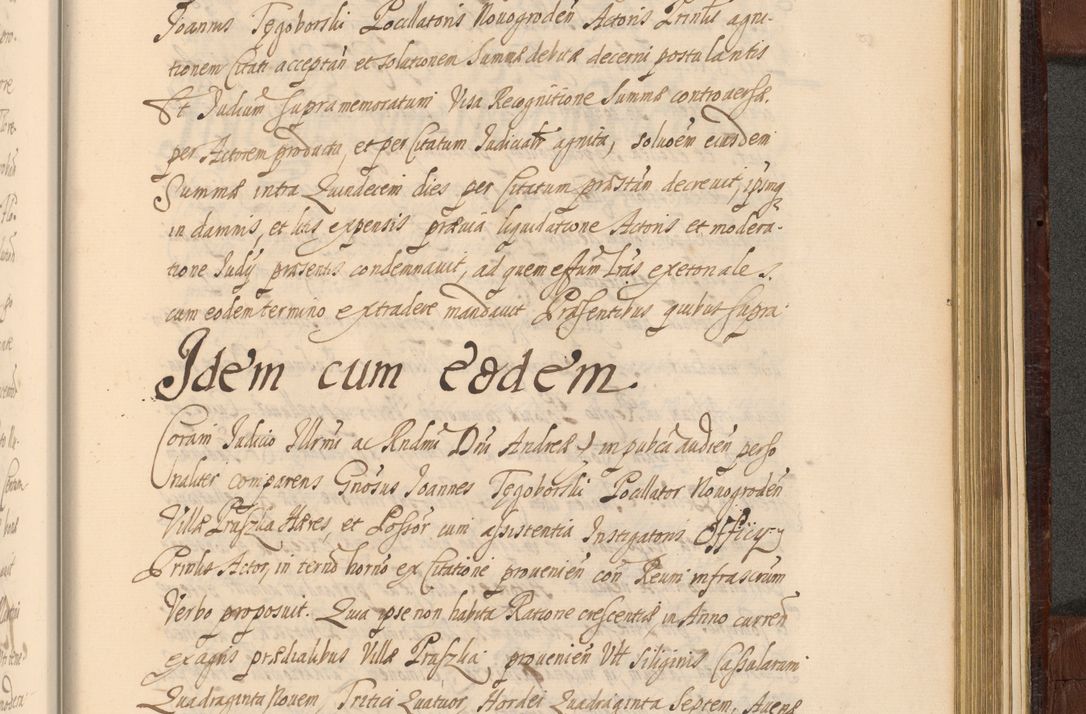 Joannis Tęgoborski Pocillatoris Nouogroden̄ Actoris Prīnlis agni-
tionem Citati acceptan̄ et solutionem Summæ debitæ decerni postulantis
Et Judicium supramemoratum Visa Recognitione Summæ controuersæ
per Actorem producta, et per Citatum Judicialr̄ agnita, soluōem eiusdem
Summæ intra Quindecim dies per Citatum præstan̄ decreuit, ipsmq3
in damnis, et litis expensis præuia liquidatione Actoris et modera-
tione Judij præsentis condemnauit, ad quem eff̄um Lr̄as exetonales.
cum eodem termino extradere mandauit Præsentibus quibus supra
Idem cum eodem.
Coram Judicio Illrmi ac Rndmi Dn̄i Andreæ) in publca audien̄ perso
naliter comparens Gn̄osus Joannes Tęgoborski Pocillator Nouogroden̄
Villæ Praszka Hæres, et Poss̄or cum assistentia Instigatoris Officij
Prīnlis Actor, in tern̄o horn̄o ex Citatione prouenien̄ con̄ Reum infrascr̄um
Verbo proposuit. Quia ipse non habita Ratione crescentiæ in Anno curren̄
ex agris prædialibus Villæ Praszka prouenien̄ Vtt Siliginis Cassularum
Quadraginta Nouem, Tritici Quatuor, Hordei Quadraginta Septem, Auenæ